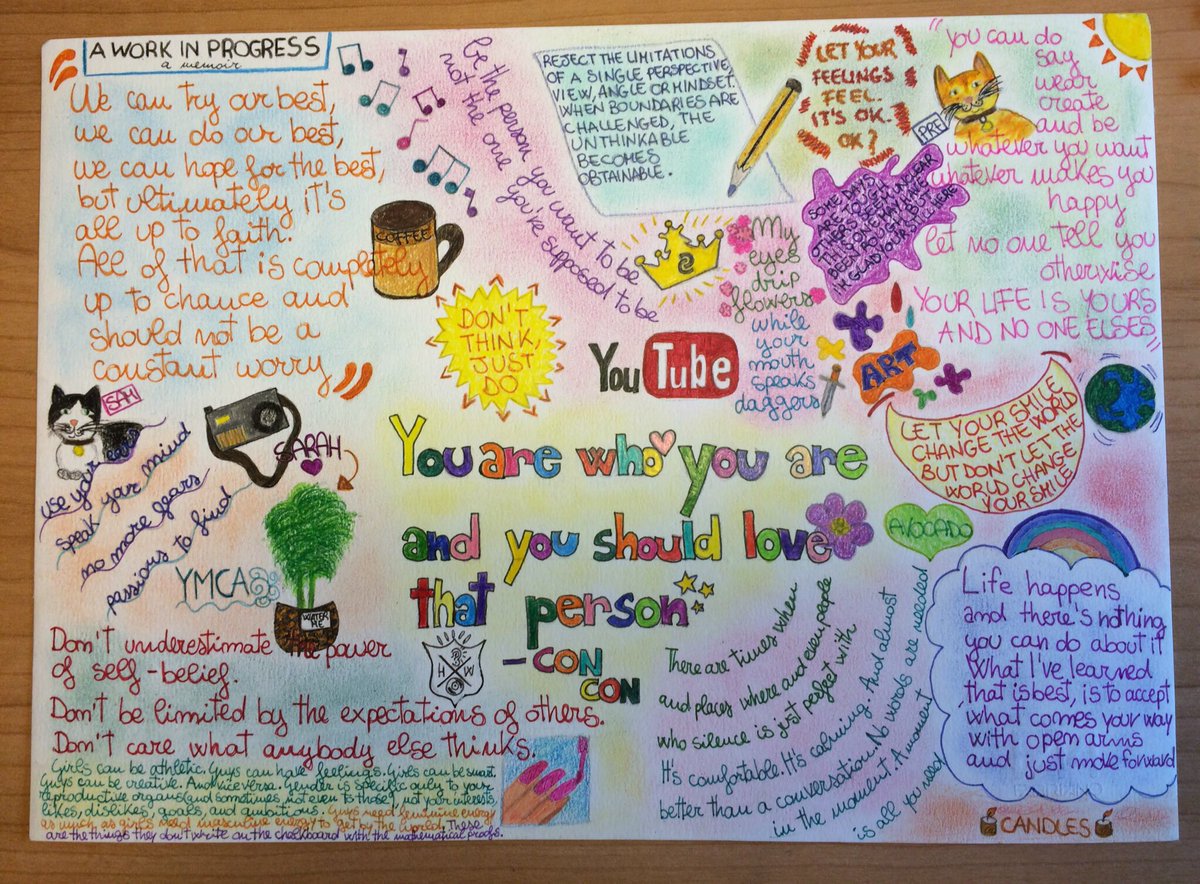 A WORK IN PROGRESS
a memoir
"We can try our best,
we can do our best,
we can hope for the best,
but ultimately it's
all up to faith.
All of that is completely
up to chance and
should not be a
constant worry"
be the person you want to be
not the one you're supposed to be
REJECT THE LIMITATIONS
OF A SINGLE PERSPECTIVE,
VIEW, ANGLE OR MINDSET.
WHEN BOUNDARIES ARE
CHALLENGED, THE
UNTHINKABLE
BECOMES
OBTAINABLE.
LET YOUR
FEELINGS
FEEL.
IT'S OK.
OK?
PRE
"you can do
say
wear
create
and be
whatever you want
whatever makes you
happy
let no one tell you
otherxise
YOUR LIFE IS YOURS
AND NO ONE ELSES"
SOME DAYS
ARE QUIET, UNCLEAR
COFFEE
My
eyes
drip
flowers
while
your
mouth
speaks
daggers
DON'T
THINK,
JUST
DO
YouTube
ART
LET YOUR SMILE
CHANGE THE WORLD
BUT DON'T LET THE
WORLD CHANGE
YOUR SMILE
SAH
use your
speak your mind
no more fears
passions to find
SARAH
YMCA
WATER
ME
You are who you are
and you should love
that person
- CON
CON
H W
AVOCADO
Don't underestimate the power
of self-belief.
Don't be limited by the expectations of others.
Don't care what anybody else thinks.
Girls can be athletic. Guys can have feelings. Girls can be smart.
Guys can be creative. And vice versa. Gender is specific only to your
reproductive organs (and sometimes not even to those), not your interests,
likes, dislikes, goals, and ambitions. Guys need feminine energy
as much as girls need masculine energy to get by in the world. These
are the things they don't write on the chalkboard with the mathematical proofs.
There are times when
and places where and even people
who silence is just perfect with
It's comfortable. It's calming. And almost
better than a conversation. No words are needed
in the moment. A moment
is all you need.
Life happens
and there's nothing
you can do about it
What I've learned
that is best, is to accept
what comes your way
with open arms
and just move forward
CANDLES